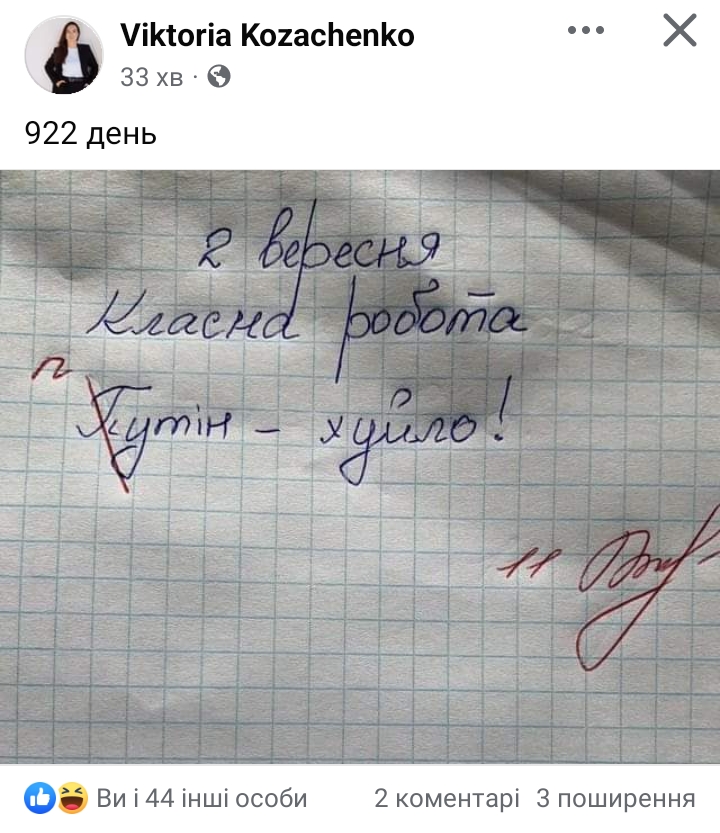 Viktoria Kozachenko
33 хв
922 день
2 вересня
Класна робота
п
Путін - хуйло!
11
Ви і 44 інші особи
2 коментарі 3 поширення